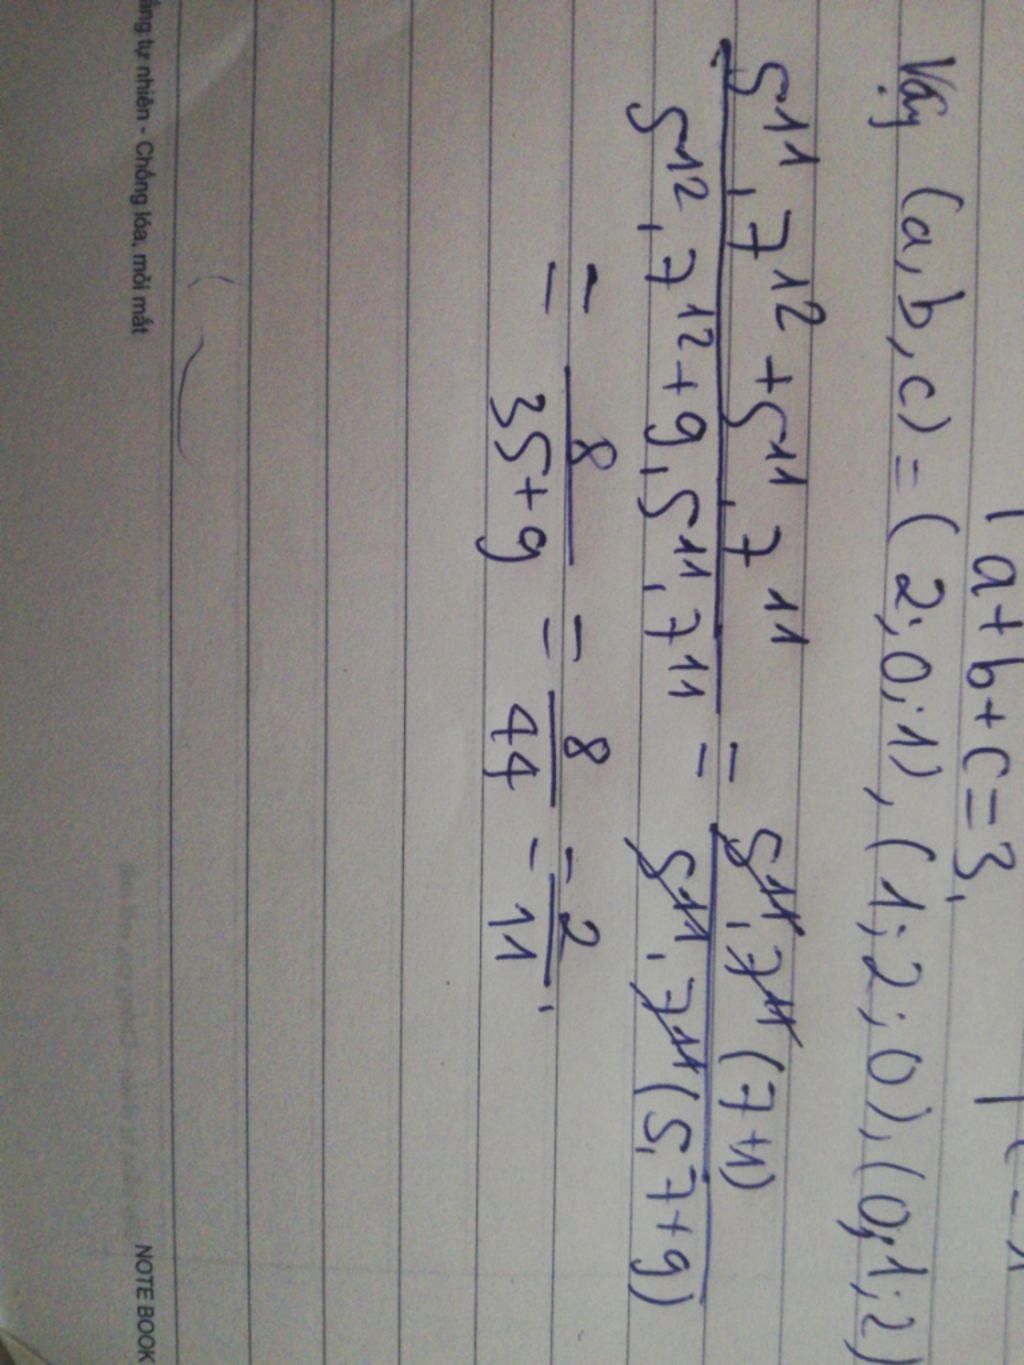 a+b+c=3.
Vậy (a,b,c) = (2;0;1), (1;2;0), (0;1;2)
5¹¹.7¹²+5¹¹.7¹¹ / 5¹².7¹²+9.5¹¹.7¹¹ = 5¹¹.7¹¹(7+1) / 5¹¹.7¹¹(5.7+9)
= 8 / 35+9 = 8 / 44 = 2 / 11.
tự nhiên - Chống lóa, mỏi mắt NOTE BOOK